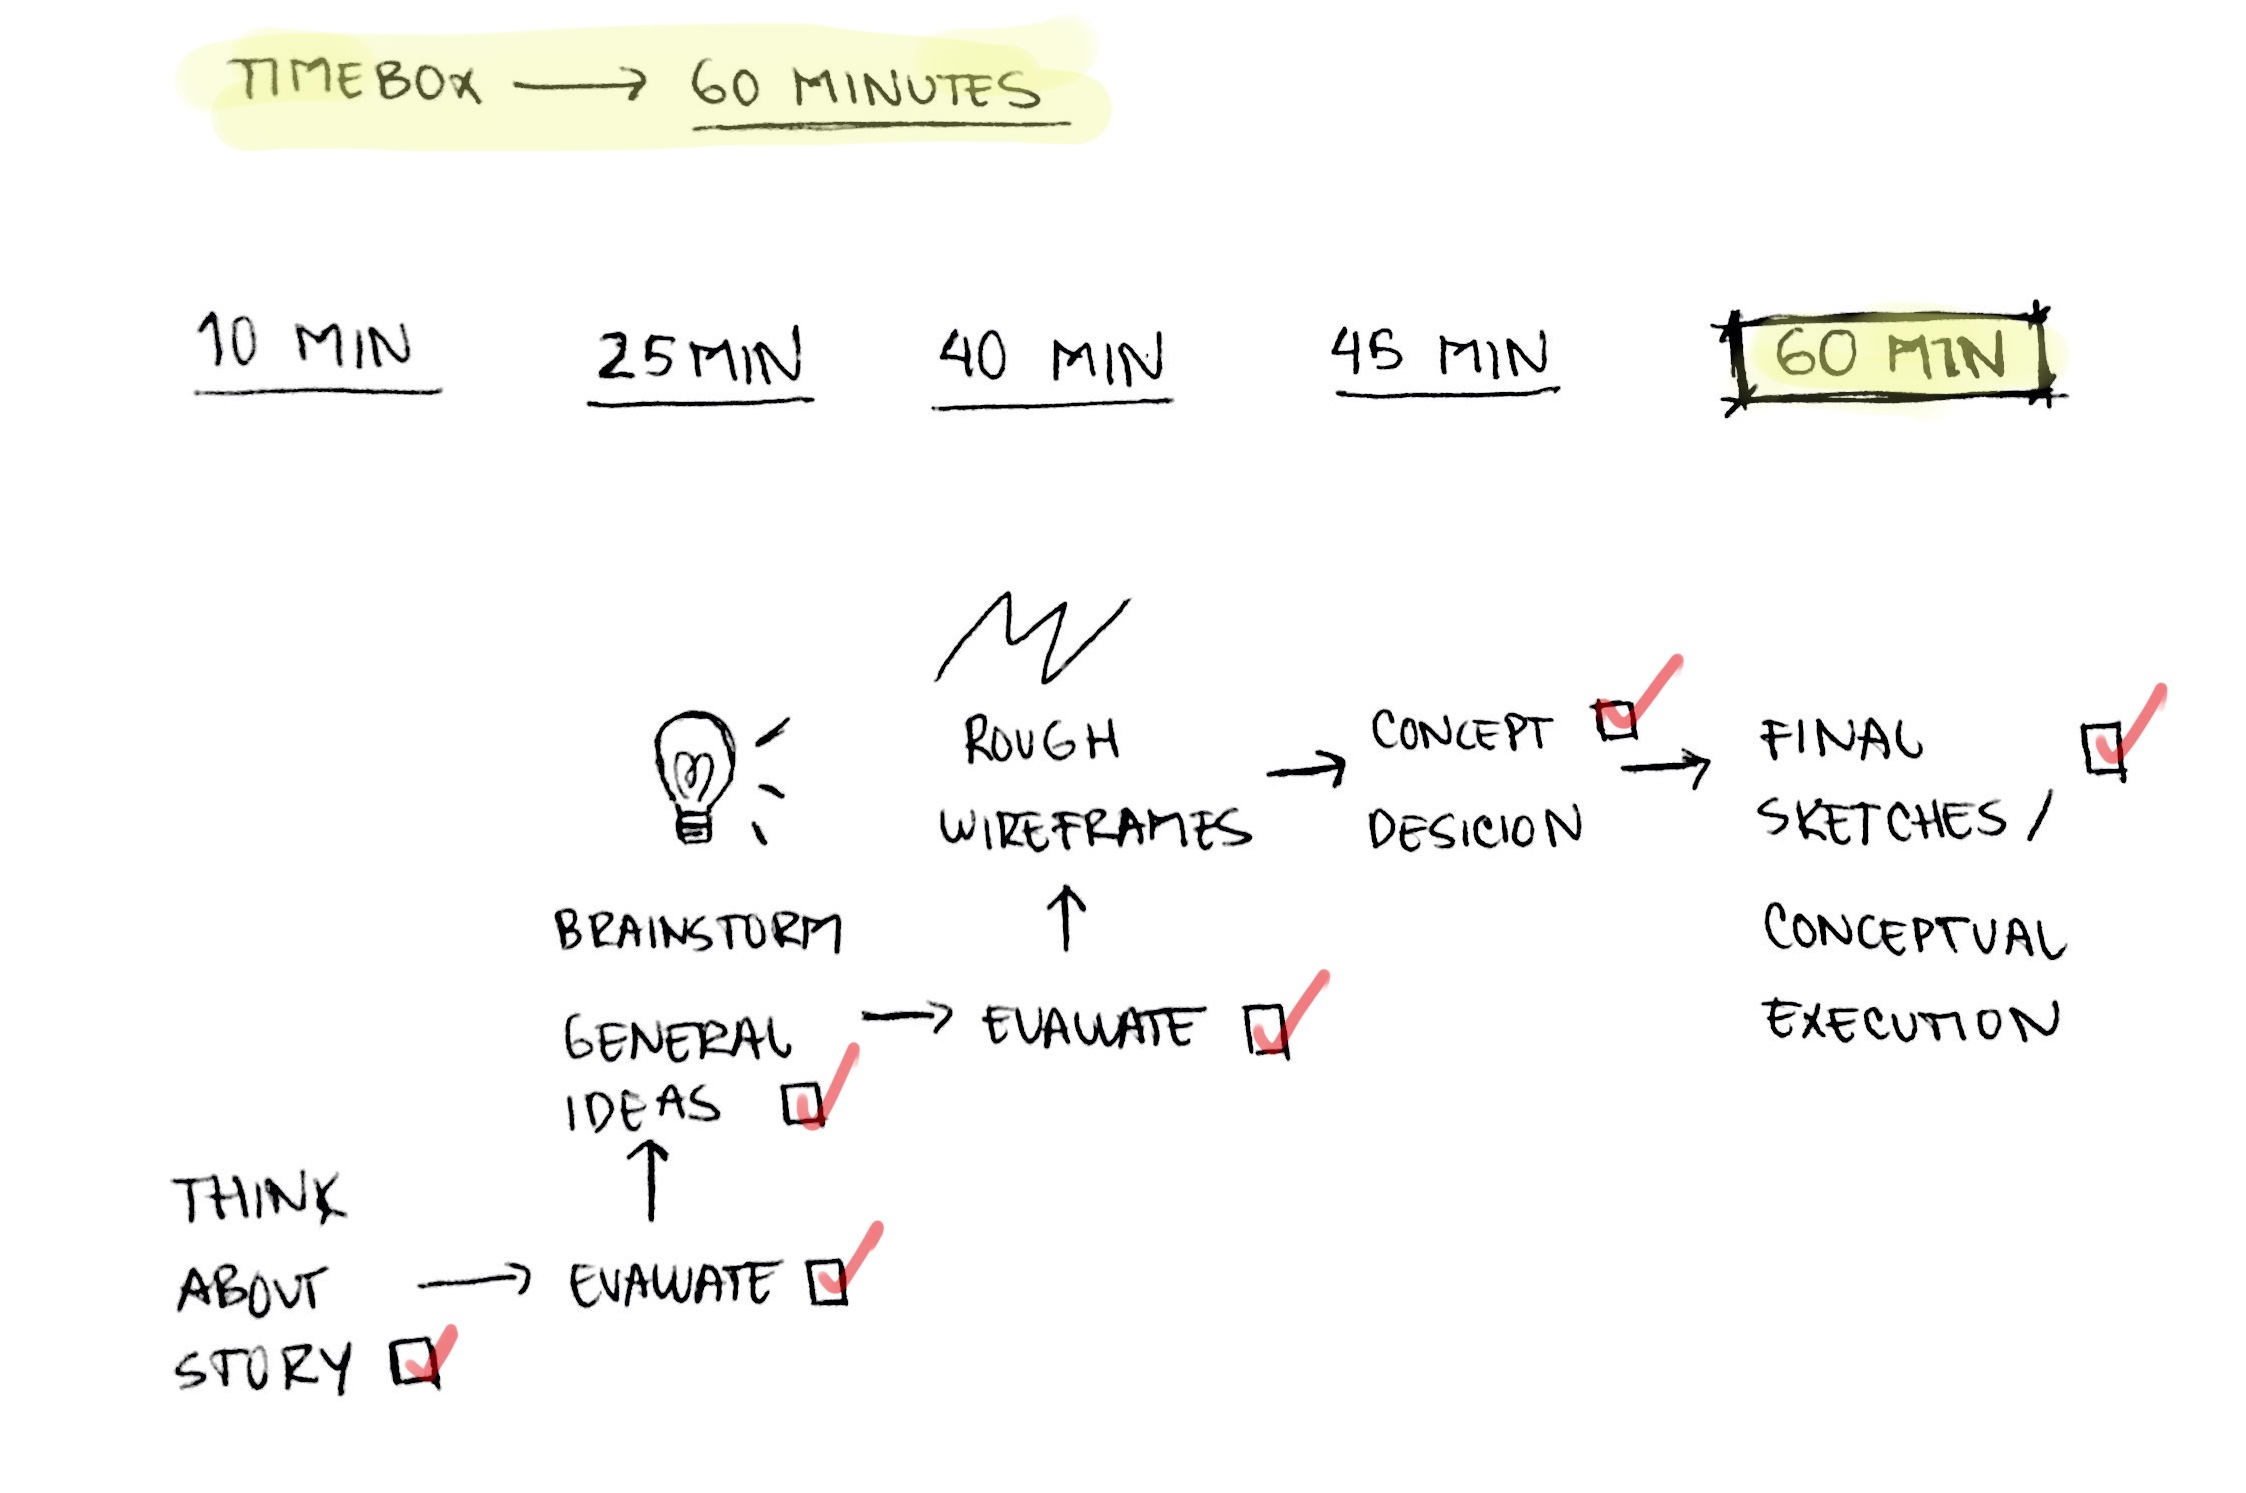 TIMEBOX → 60 MINUTES
10 MIN
25 MIN
40 MIN
45 MIN
60 MIN
THINK
ABOUT
STORY
EVALUATE
BRAINSTORM
GENERAL
IDEAS
EVALUATE
ROUGH
WIREFRAMES
CONCEPT
DESICION
FINAL
SKETCHES /
CONCEPTUAL
EXECUTION